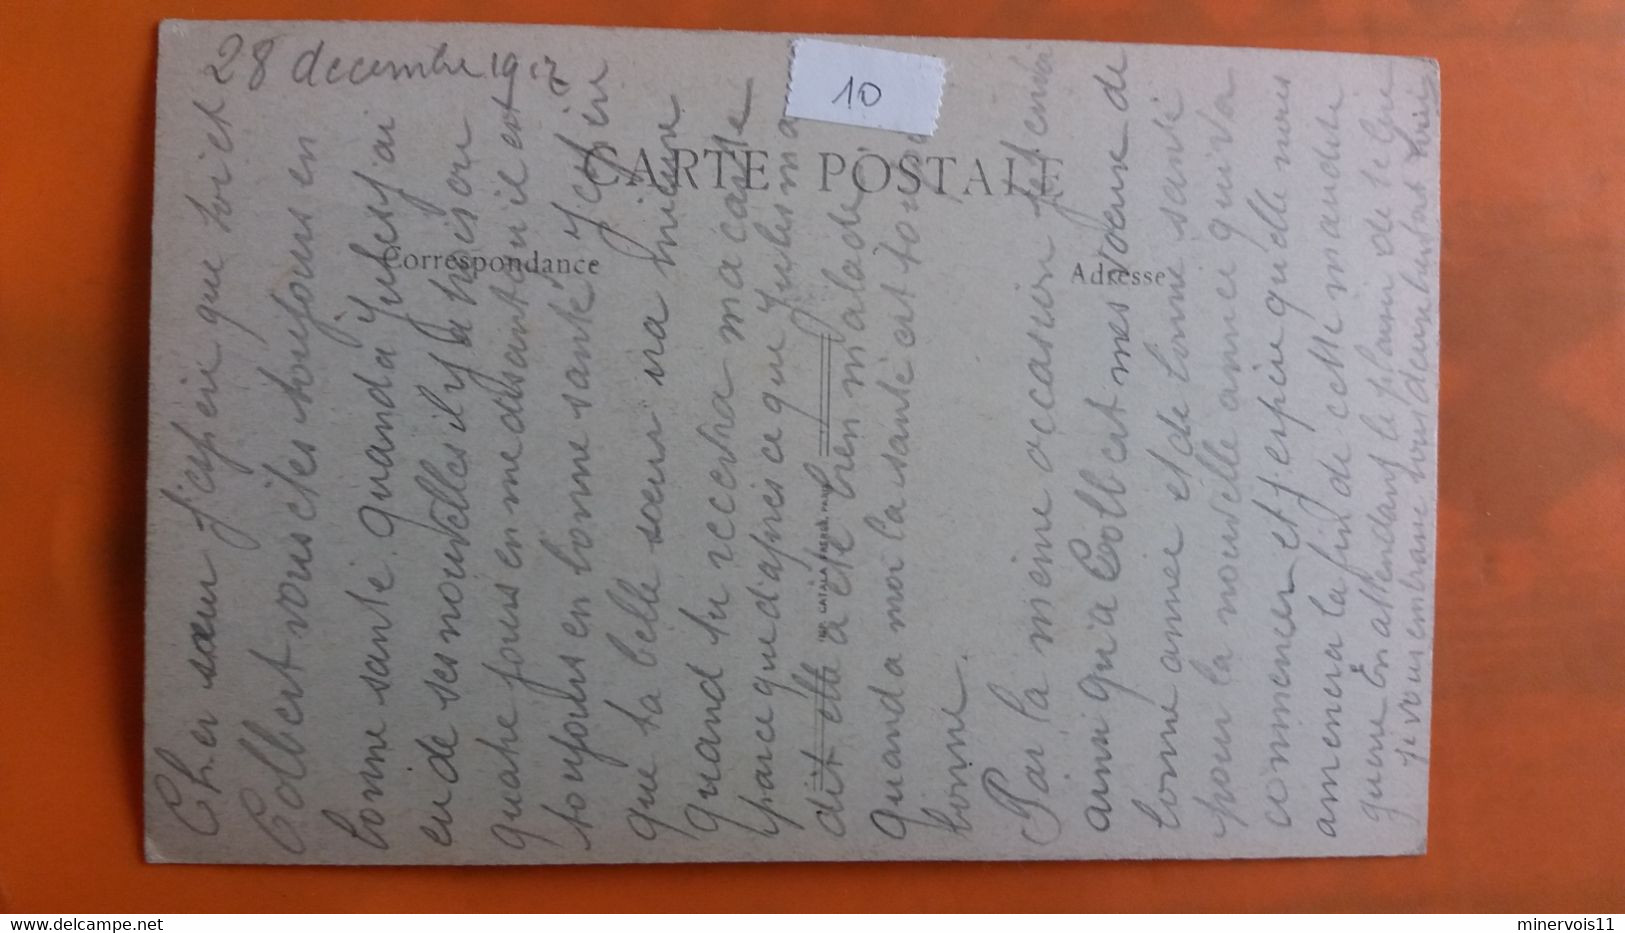 28 decembre 1917
10
CARTE POSTALE
Correspondance
Adresse
CATALA FRERES, PARIS
Cher sœur j'espere que toi et
Colbert vous êtes toujours en
bonne santé. quand a Yubes j'ai
eu de ses nouvelles il y a trois ou
quatre jours en me disant qu'il est
toujours en bonne santé, y espere
que ta belle sœur va mieux
quand tu recevra ma carte
parce que d'apres ce que Yubes m'a
dit elle a été bien malade
quand a moi la santé est toujours
bonne.
Par la même occasion je t'envoi
ainsi qu'a Colbert mes voeux de
bonne annee et de bonne santé
pour la nouvelle annee qui va
commencer et j'espere qu'elle nous
amenera la fin de cette maudite
guerre En attendant le plaisir de te lire
je vous embrasse tous deux bien fort
minervois11